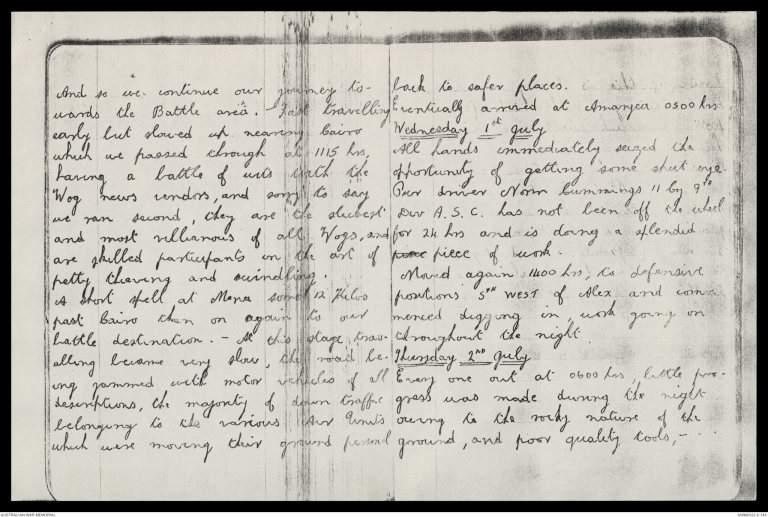 And so we continue our journey to-
wards the Battle area. Fast travelling
early but slowed up nearing Cairo
which we passed through at 1115 hrs,
having a battle of wits with the
Wog news vendors, and sorry to say
we ran second, they are the slickest
and most villianous of all Wogs, and
are skilled participants in the art of
petty thieving and swindling.
A short spell at Mena some 12 Kilos
past Cairo then on again to our
battle destination. - At this stage, trav-
elling became very slow, the road be-
ing jammed with motor vehicles of all
descriptions, the majority of down traffic
belonging to the various Air Units
which were moving their ground personel
back to safer places.
Eventually arrived at Amaryea 0500 hrs
Wednesday 1st July
All hands immediately seized the
opportunity of getting some shut eye.
Our driver Norm Cummings 11 by 9th
Div A.S.C. has not been off the wheel
for 24 hrs and is doing a splendid
piece of work.
Moved again 1400 hrs, to defensive
positions STH WEST of Alex and com-
menced digging in, work going on
throughout the night
Thursday 2nd July
Every one out at 0600 hrs, little pro-
gress was made during the night
owing to the rocky nature of the
ground, and poor quality tools, -
AUSTRALIAN WAR MEMORIAL